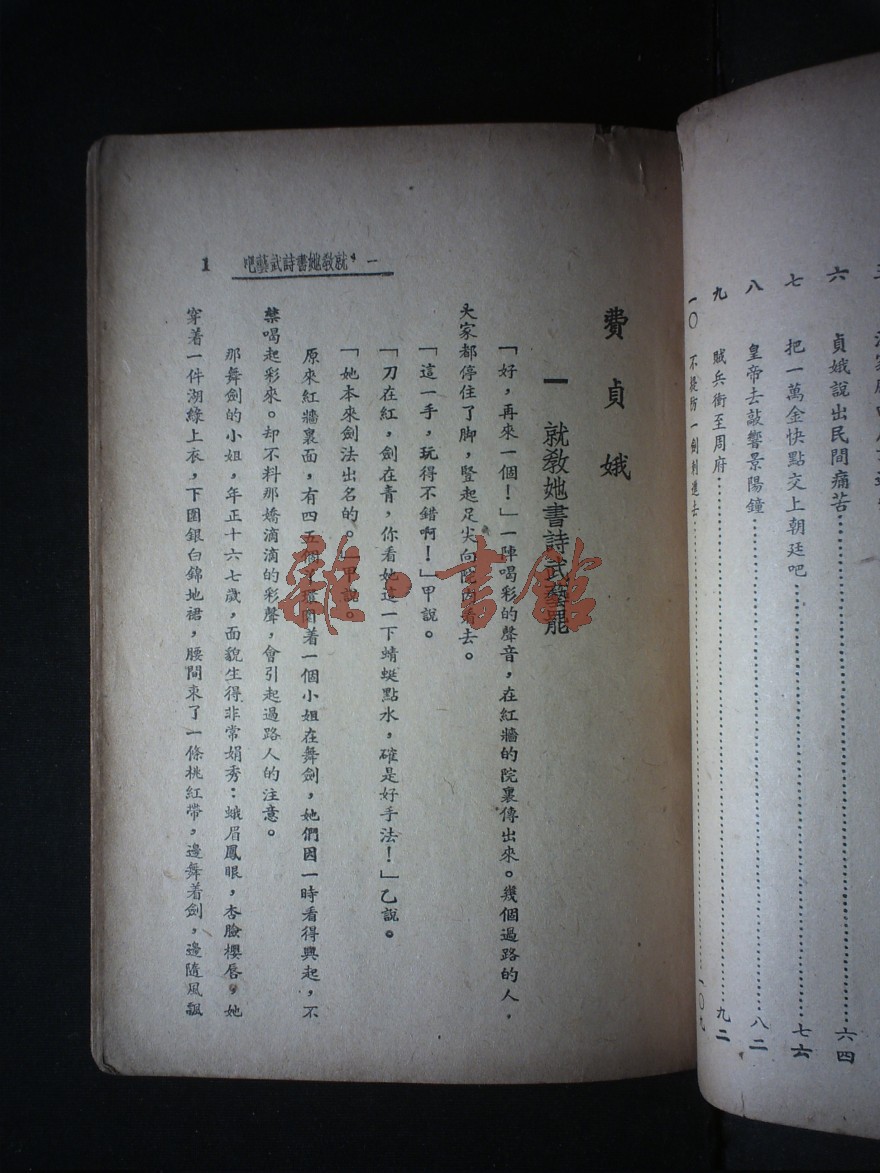 六　貞娥說出民間痛苦……六四
七　把一萬金快點交上朝廷吧……七六
八　皇帝去敲響景陽鐘……八二
九　賊兵衝至周府……九二
一〇　不提防一劍刺進去……一〇九
一・就敎她書詩武藝吧　1
費貞娥
一　就敎她書詩武藝罷
「好，再來一個！」一陣喝彩的聲音，在紅牆的院裏傳出來。幾個過路的人，
大家都停住了脚，豎起足尖向院內看去。
「這一手，玩得不錯啊！」甲說。
「刀在紅，劍在青，你看她這一下蜻蜓點水，確是好手法！」乙說。
「她本來劍法出名的。」甲說。
原來紅牆裏面，有四五個丫環圍着一個小姐在舞劍，她們因一時看得興起，不
禁喝起彩來。却不料那嬌滴滴的彩聲，會引起過路人的注意。
那舞劍的小姐，年正十六七歲，面貌生得非常娟秀：蛾眉鳳眼，杏臉櫻唇，她
穿着一件湖綠上衣，下圍銀白錦地裙，腰間束了一條桃紅帶，邊舞着劍，邊隨風飄
雜・書館